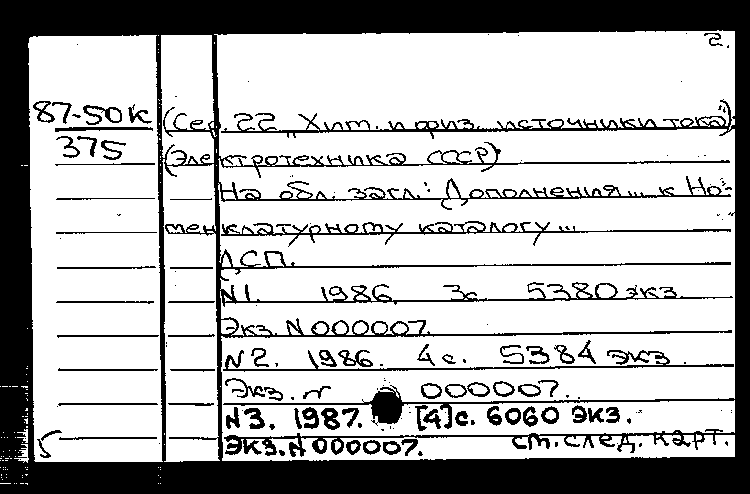 2.
87-50к (Сер. 22 „Хим. и физ. источники тока").
375 (Электротехника СССР)
На обл. загл.: Дополнения... к Но-
менклатурному каталогу...
ДСП.
N1. 1986. 3с 5380 экз.
Экз. N 000007.
N2. 1986. 4с. 5384 экз.
Экз. N 000007.
N3. 1987. [4]с. 6060 экз.
Экз. N 000007. см. след. карт.
5